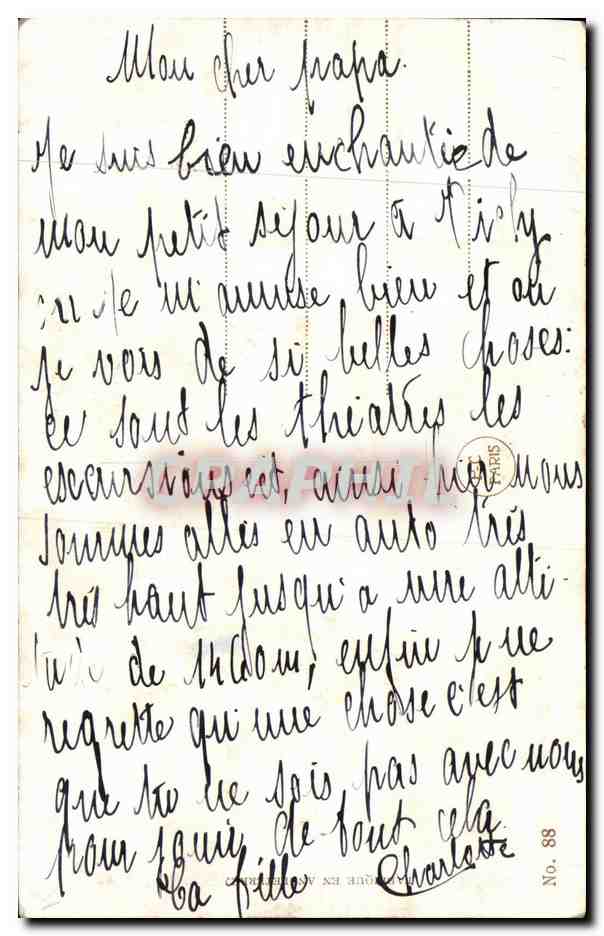 Mon cher papa.
Je suis bien enchantée de
mon petit séjour à Vichy
ou je m'amuse bien et ou
je vois de si belles choses:
ce sont les théatres les
escursions ect, ainsi hier nous
sommes allés en auto très
très haut jusqu'a une alti-
tude de 1400m, enfin je ne
regrette qu'une chose c'est
que tu ne sois pas avec nous
pour jouir de tout cela
Ta fille Charlotte
PARIS
CRAPEIT
FABRIQUE EN ANGLETERRE
No. 88